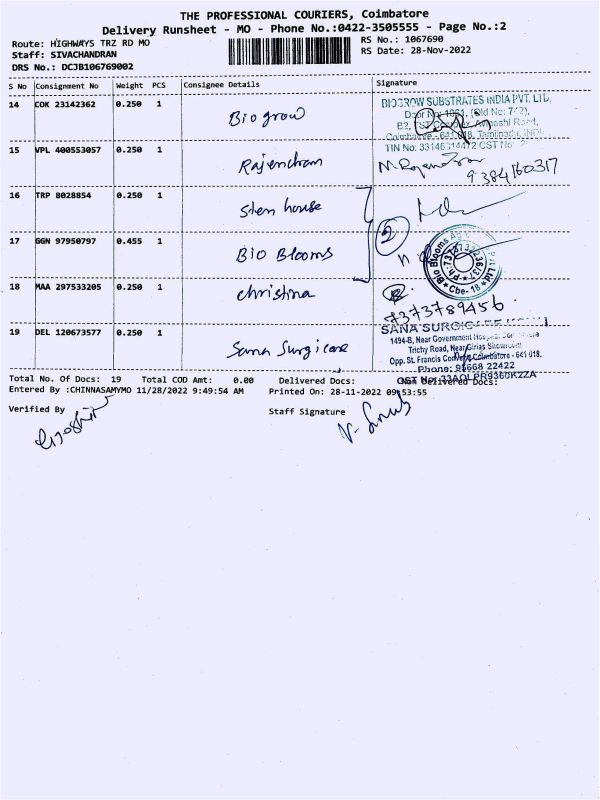 THE PROFESSIONAL COURIERS, Coimbatore
Delivery Runsheet - MO - Phone No.:0422-3505555 - Page No.:2
Route: HIGHWAYS TRZ RD MO
Staff: SIVACHANDRAN
DRS No.: DCJB106769002
RS No.: 1067690
RS Date: 28-Nov-2022
S No Consignment No Weight PCS Consignee Details Signature
14 COK 23142362 0.250 1 Biogrow
BIOGROW SUBSTRATES INDIA PVT. LTD,
15 VPL 400553057 0.250 1 Rajendran
9384160317
16 TRP 8028854 0.250 1 Stem house
2
17 GGN 97950797 0.455 1 Bio Blooms
18 MAA 297533205 0.250 1 christina
7373789456
19 DEL 120673577 0.250 1 Sana Surgicare
1494-B, Near Government
Trichy Road, Near Girias
Opp. St. Francis Convent, Coimbatore - 641 018.
Phone: 98668 22422
Total No. Of Docs: 19 Total COD Amt: 0.00 Delivered Docs: Not Delivered Docs:
Entered By :CHINNASAMYMO 11/28/2022 9:49:54 AM Printed On: 28-11-2022 09:53:55
Verified By Staff Signature